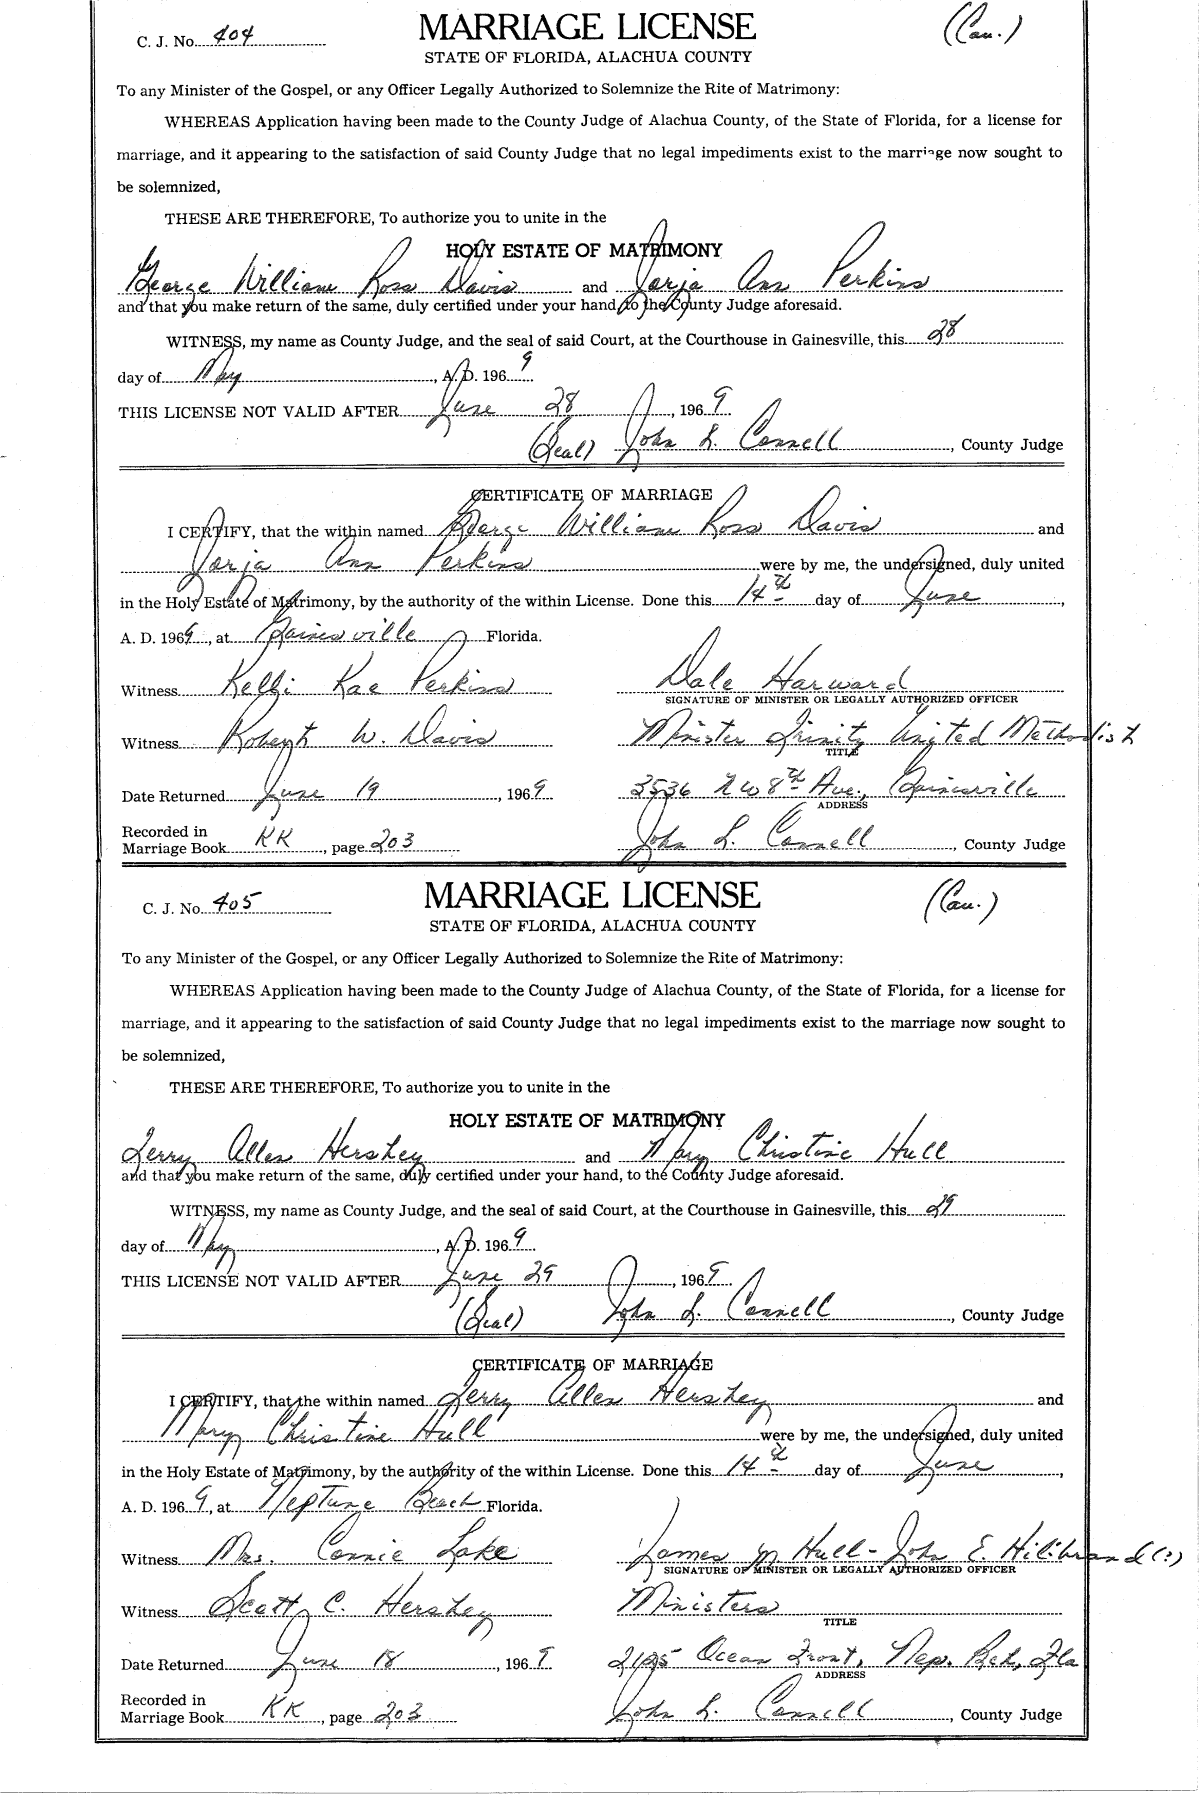 C. J. No. 404
MARRIAGE LICENSE
(Cau.)
STATE OF FLORIDA, ALACHUA COUNTY
To any Minister of the Gospel, or any Officer Legally Authorized to Solemnize the Rite of Matrimony:
WHEREAS Application having been made to the County Judge of Alachua County, of the State of Florida, for a license for
marriage, and it appearing to the satisfaction of said County Judge that no legal impediments exist to the marriage now sought to
be solemnized,
THESE ARE THEREFORE, To authorize you to unite in the
HOLY ESTATE OF MATRIMONY
George William Ross Davis and Jorja Ann Perkins
and that you make return of the same, duly certified under your hand, to the County Judge aforesaid.
WITNESS, my name as County Judge, and the seal of said Court, at the Courthouse in Gainesville, this 28
day of May, A. D. 1969.
THIS LICENSE NOT VALID AFTER June 28, 1969.
(Seal) John L. Connell, County Judge
CERTIFICATE OF MARRIAGE
I CERTIFY, that the within named George William Ross Davis and
Jorja Ann Perkins were by me, the undersigned, duly united
in the Holy Estate of Matrimony, by the authority of the within License. Done this 14th day of June,
A. D. 1969, at Gainesville Florida.
Witness Kelli Kae Perkins Dale Harward
SIGNATURE OF MINISTER OR LEGALLY AUTHORIZED OFFICER
Witness Robert W. Davis Minister Trinity United Methodist
TITLE
Date Returned June 19, 1969 3536 NW 8th Ave., Gainesville
ADDRESS
Recorded in
Marriage Book KK, page 203 John L. Connell, County Judge
C. J. No. 405
MARRIAGE LICENSE
(Cau.)
STATE OF FLORIDA, ALACHUA COUNTY
To any Minister of the Gospel, or any Officer Legally Authorized to Solemnize the Rite of Matrimony:
WHEREAS Application having been made to the County Judge of Alachua County, of the State of Florida, for a license for
marriage, and it appearing to the satisfaction of said County Judge that no legal impediments exist to the marriage now sought to
be solemnized,
THESE ARE THEREFORE, To authorize you to unite in the
HOLY ESTATE OF MATRIMONY
Jerry Allen Hershey and Mary Christine Hull
and that you make return of the same, duly certified under your hand, to the County Judge aforesaid.
WITNESS, my name as County Judge, and the seal of said Court, at the Courthouse in Gainesville, this 29
day of May, A. D. 1969.
THIS LICENSE NOT VALID AFTER June 29, 1969.
(Seal) John L. Connell, County Judge
CERTIFICATE OF MARRIAGE
I CERTIFY, that the within named Jerry Allen Hershey and
Mary Christine Hull were by me, the undersigned, duly united
in the Holy Estate of Matrimony, by the authority of the within License. Done this 14th day of June,
A. D. 1969, at Neptune Beach Florida.
Witness Mrs. Connie Lake James M Hull - John E. Hilibrand (?)
SIGNATURE OF MINISTER OR LEGALLY AUTHORIZED OFFICER
Witness Scott C. Hershey Ministers
TITLE
Date Returned June 18, 1969 Ocean Front, Nep. Bch, Fla
ADDRESS
Recorded in
Marriage Book KK, page 203 John L. Connell, County Judge